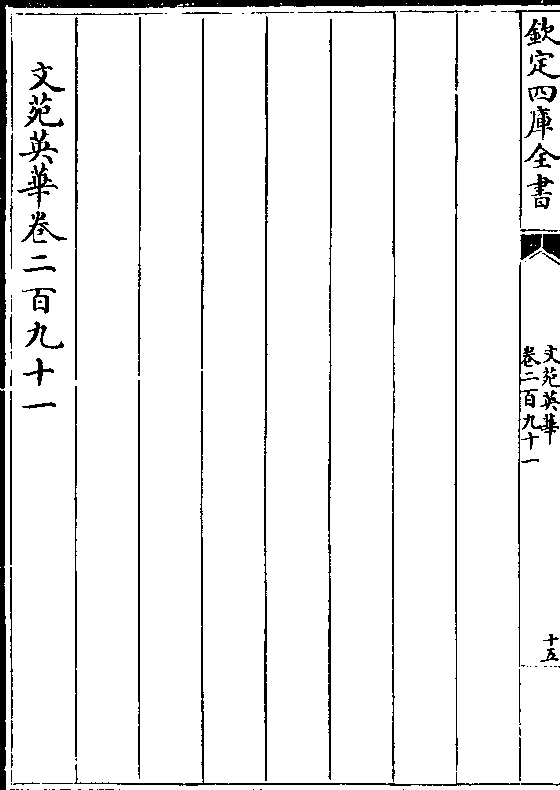 欽定四庫全書
文苑英華
卷二百九十一
十五
文苑英華卷二百九十一